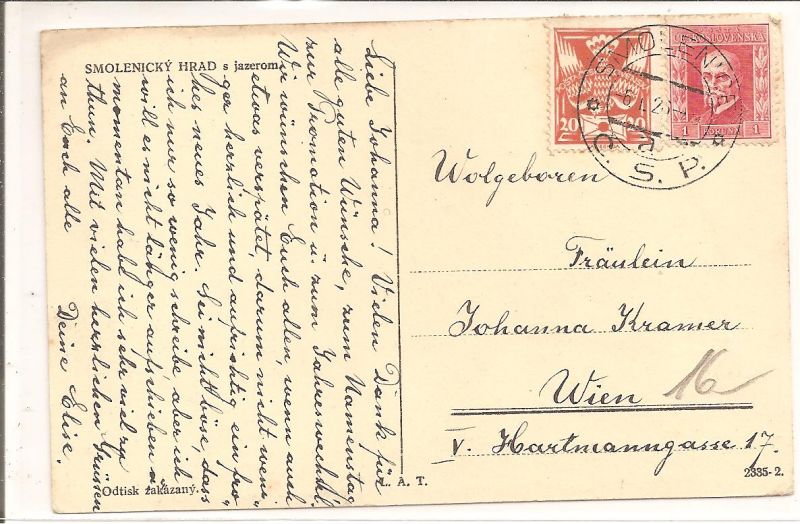 SMOLENICKÝ HRAD s jazerom.
Liebe Johanna! Vielen Dank für
alle guten Wünsche, zum Namenstag,
zur Promotion u. zum Jahreswechsel.
Wir wünschen Euch allen, wenn auch
etwas verspätet, darum nicht weni„
ger herzlich und aufrichtig ein fro„
hes neues Jahr. Sei nicht böse, dass
ich nur so wenig schreibe, aber ich
will es nicht länger aufschieben u.
momentan habe ich sehr viel zu
thun. Mit vielen herzlichen Grüssen
an Euch alle
Deine Elise.
Odtisk zakázaný.
A. T.
SMOLENICE
Č. S. P.
20 20
ČESKOSLOVENSKÁ
1 1
Wolgeboren
Fräulein
Johanna Kramer
Wien 16
V. Hartmanngasse 17.
2335-2.